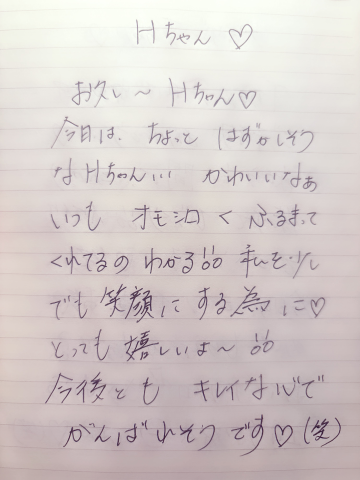 Hちゃん ♡
お久し〜 Hちゃん♡
今日は、ちょっと はずかしそう
な Hちゃん… かわいいなぁ
いつも オモシロく ふるまって
くれてるの わかる 私を少し
でも 笑顔に する為 に♡
とっても 嬉しいよ〜
今後とも キレイな心で
がんばれそうです♡(笑)